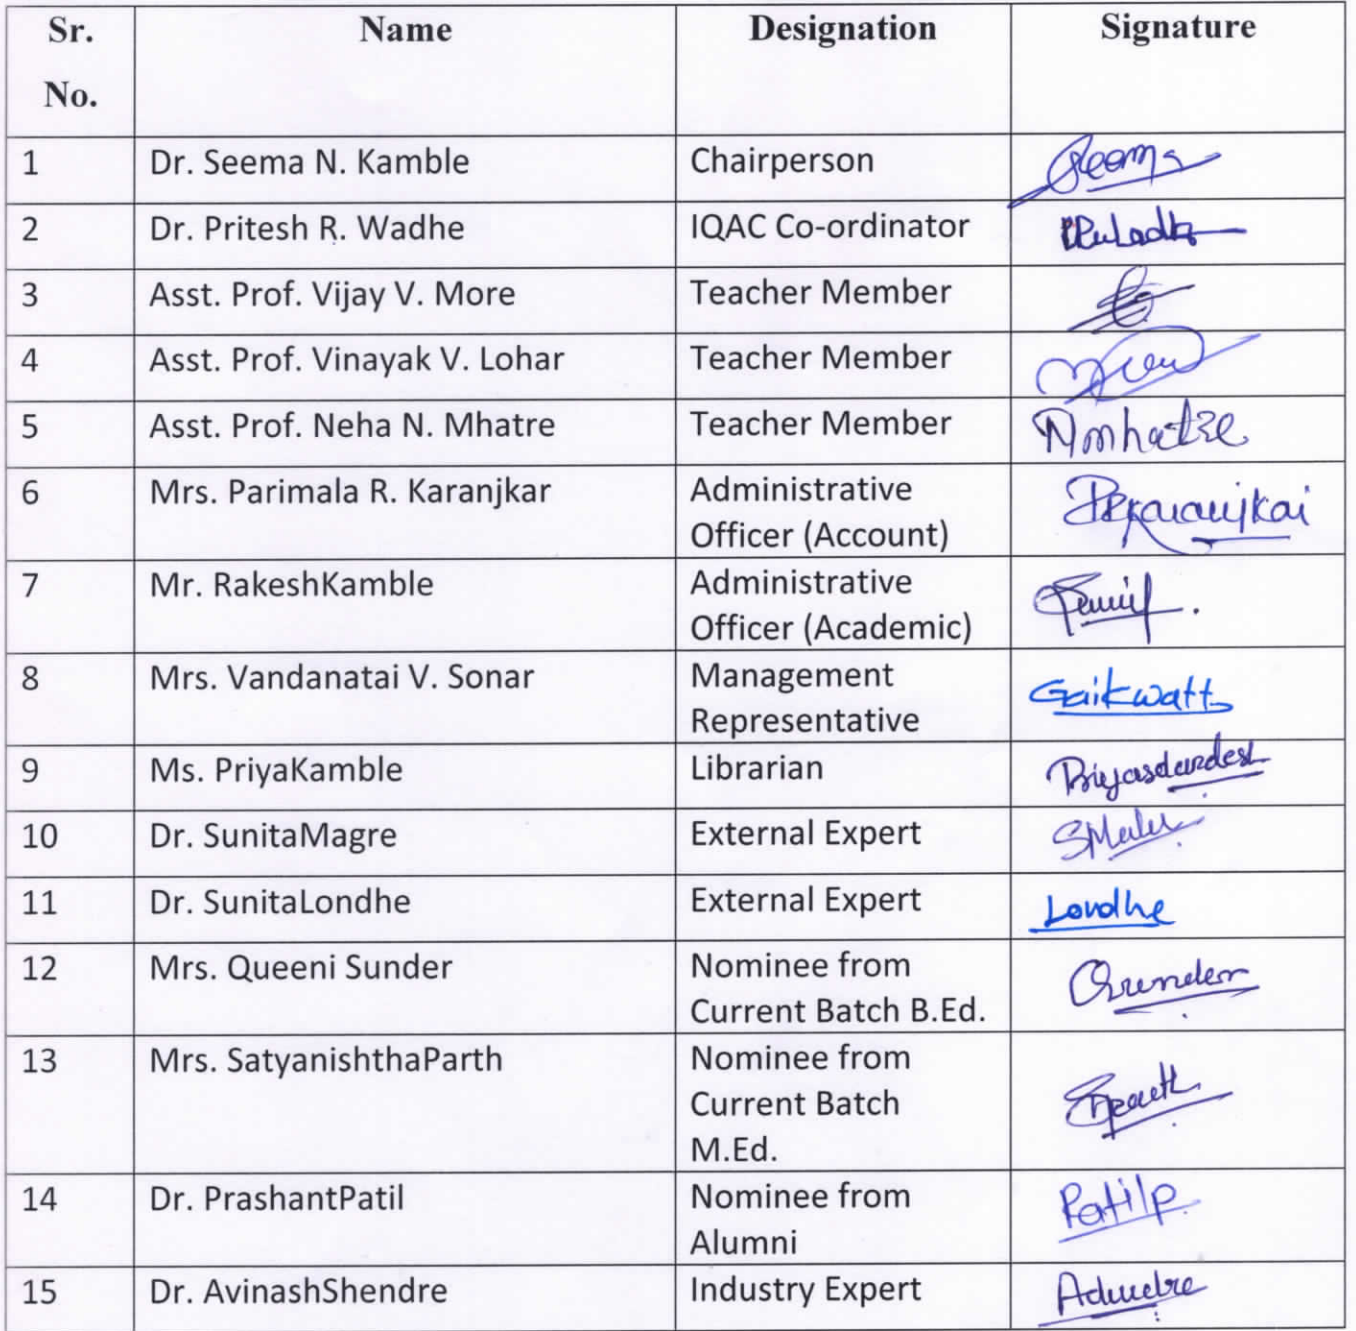 Sr. No. Name Designation Signature
1 Dr. Seema N. Kamble Chairperson Seema
2 Dr. Pritesh R. Wadhe IQAC Co-ordinator
3 Asst. Prof. Vijay V. More Teacher Member
4 Asst. Prof. Vinayak V. Lohar Teacher Member
5 Asst. Prof. Neha N. Mhatre Teacher Member Nmhatre
6 Mrs. Parimala R. Karanjkar Administrative
Officer (Account) PRKaranjkar
7 Mr. RakeshKamble Administrative
Officer (Academic)
8 Mrs. Vandanatai V. Sonar Management
Representative Gaikwatt
9 Ms. PriyaKamble Librarian
10 Dr. SunitaMagre External Expert
11 Dr. SunitaLondhe External Expert Londhe
12 Mrs. Queeni Sunder Nominee from
Current Batch B.Ed.
13 Mrs. SatyanishthaParth Nominee from
Current Batch
M.Ed.
14 Dr. PrashantPatil Nominee from
Alumni PatilP
15 Dr. AvinashShendre Industry Expert